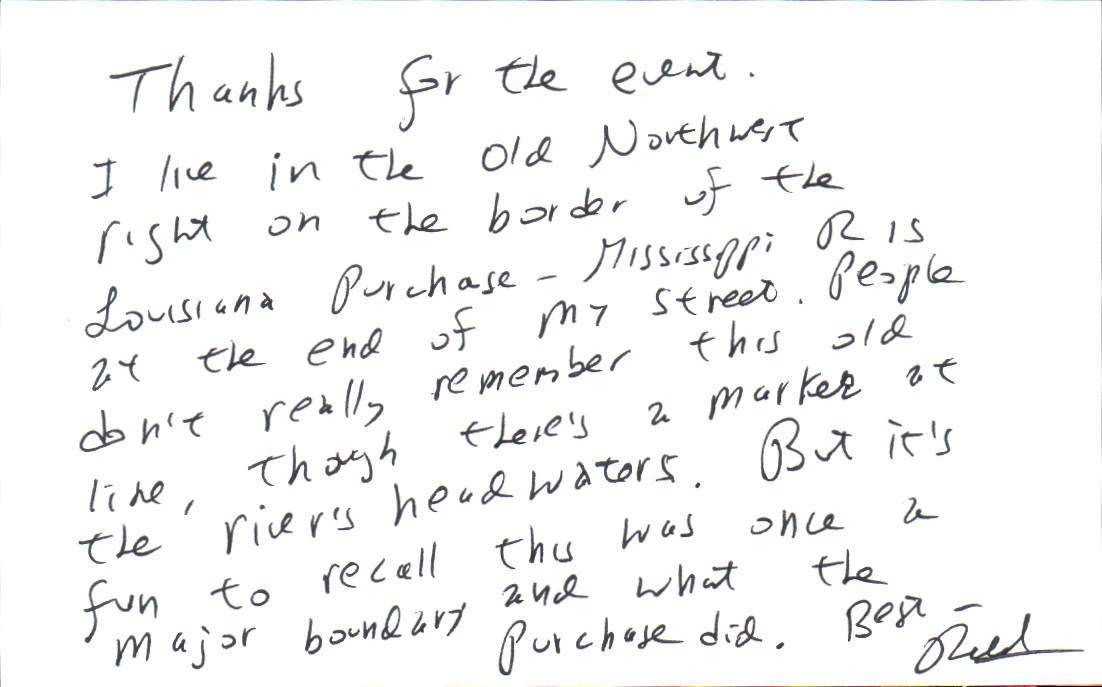 Thanks for the event.
I live in the Old Northwest
right on the border of the
Louisiana Purchase – Mississippi R is
at the end of my street. People
don't really remember this old
line, though there's a marker at
the river's headwaters. But it's
fun to recall this was once a
major boundary and what the
Purchase did. Best –